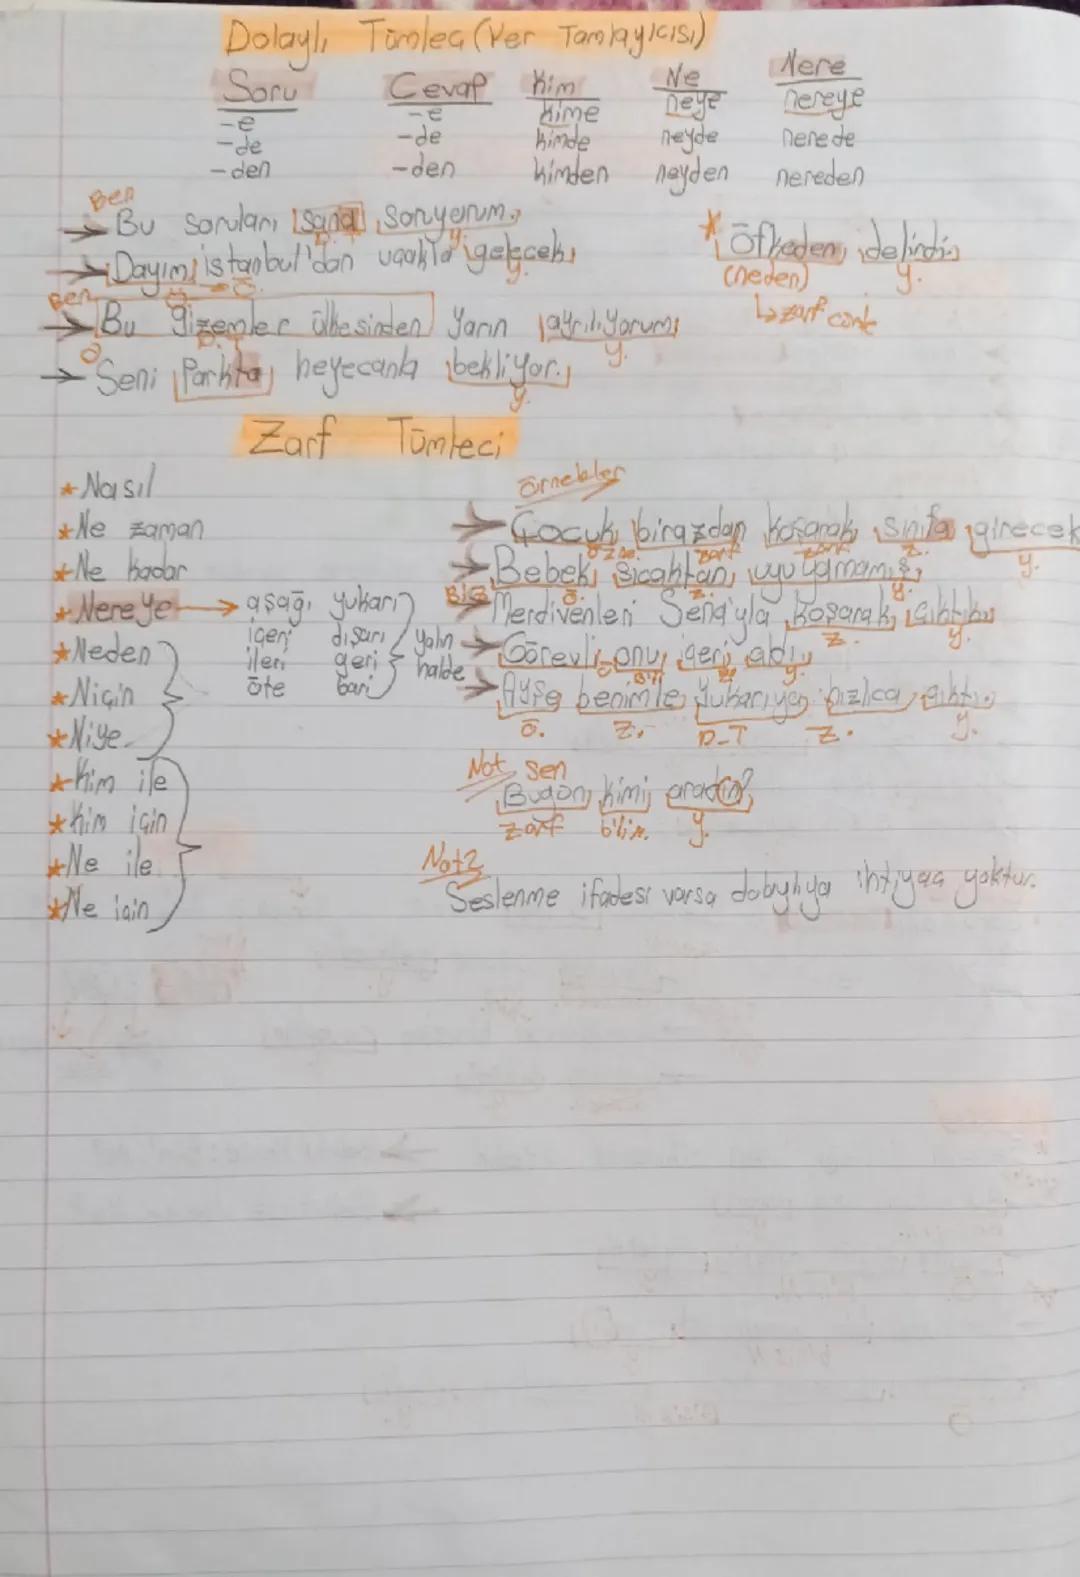 Dolaylı Tümleç (Yer Tamlayıcısı)
Soru Cevap Kim Ne Nere
-e -e kime neye nereye
-de -de kimde neyde nerede
-den -den kimden neyden nereden
Ben
→ Bu soruları sana soruyorum. y.
→ Dayım İstanbul'dan uçakla gelecek y.
Ben
→ Bu gizemler ülkesinden yarın ayrılıyorum y.
→ Seni Parkta heyecanla bekliyor. y.
* Öfkeden delindi. y.
(neden)
↳ zarf
Zarf Tümleci
* Nasıl
* Ne zaman
* Ne kadar
* Nereye → aşağı yukarı
içeri dışarı
ileri geri
öte beri
yalın halde
* Neden
* Niçin
* Niye
* Kim ile
* Kim için
* Ne ile
* Ne için
Örnekler
→ Çocuk birazdan koşarak sınıfa girecek
özne zarf zarf y.
→ Bebek sıcaktan uyuyamamış.
ö. z. y.
Biz
→ Merdivenleri Sena'yla koşarak çıktık
z. y.
→ Görevli onu içeri aldı
y.
→ Ayşe benimle yukarıya hızlıca çıktı.
ö. z. D.T z. y.
Not Sen
Bugün kimi aradın?
zarf bli n. y.
Not2
Seslenme ifadesi varsa dolaylıya ihtiyaç yoktur.